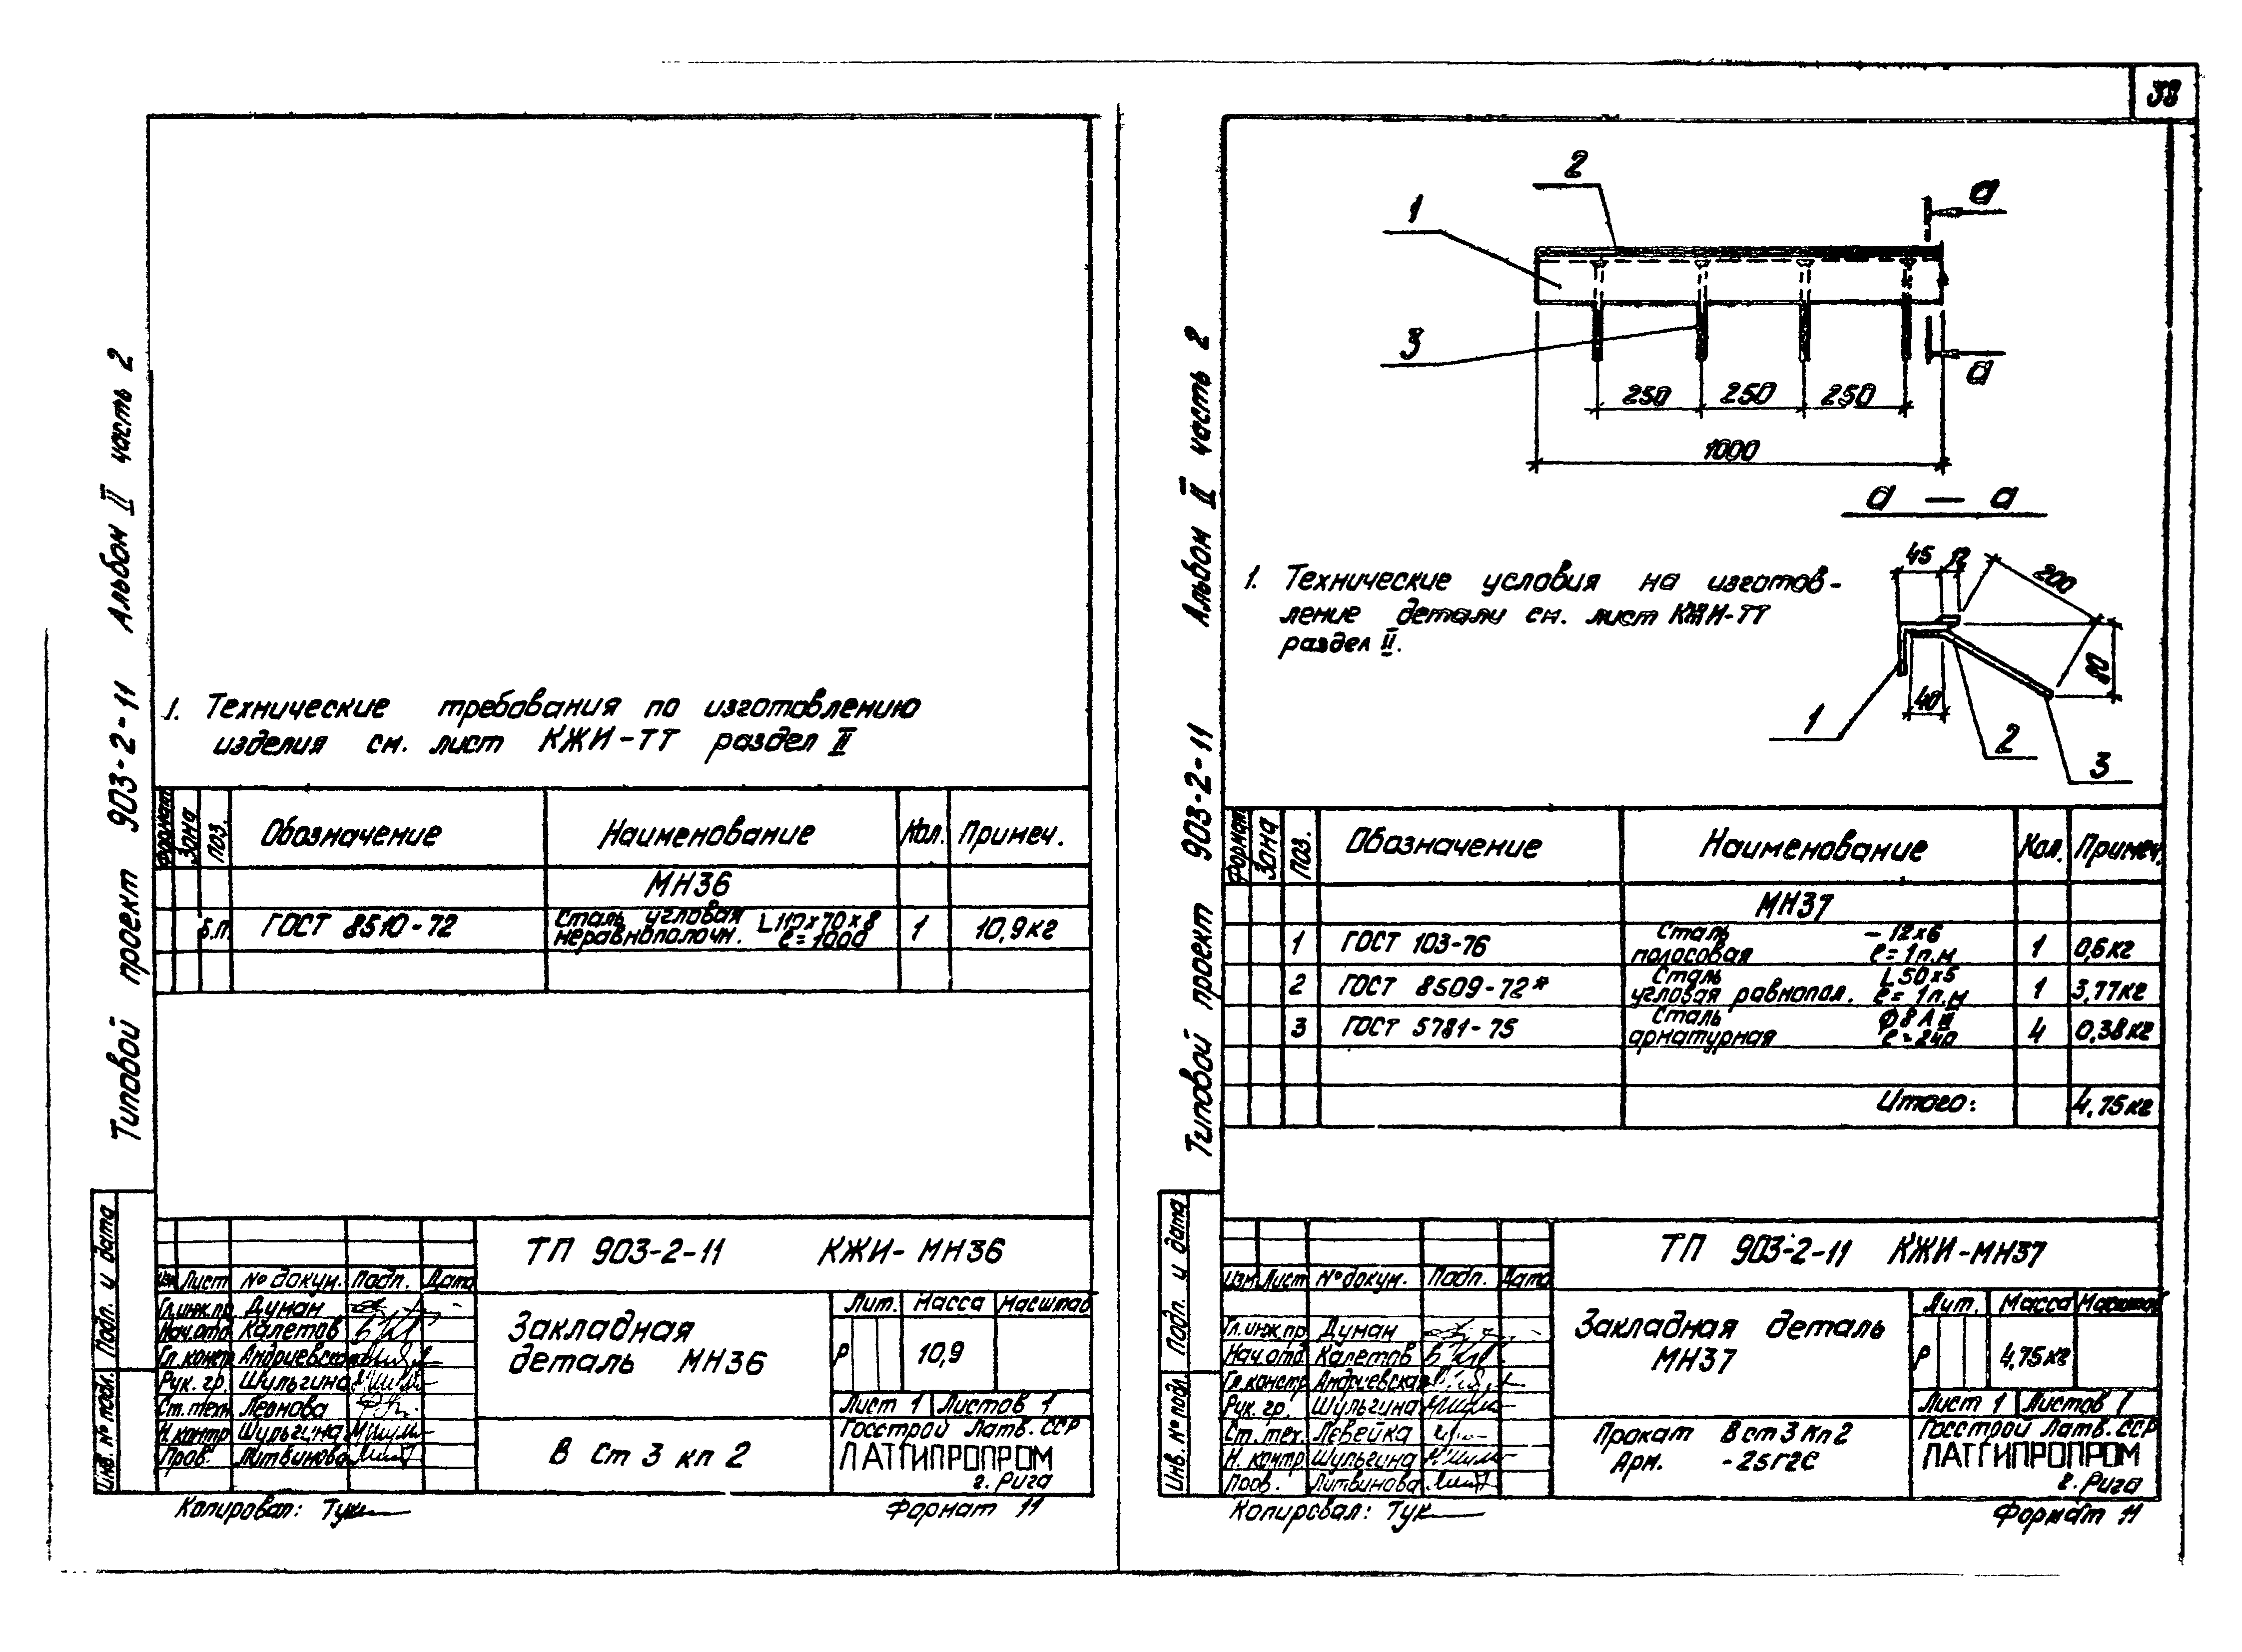 38
Типовой проект 903-2-11 Альбом II часть 2
1. Технические требования по изготовлению
изделия см. лист КЖИ-ТТ раздел II
Формат Зона Поз. Обозначение Наименование Кол. Примеч.
МН36
Б.П. ГОСТ 8510-72 Сталь угловая неравнополочн. L110х70х8 ℓ=1000 1 10,9кг
Подп. и дата
Инв. № подл.
ТП 903-2-11 КЖИ- МН36
Изм Лист № докум. Подп. Дата
Гл.инж.пр Думан
Нач.отд Калетов
Гл. констр Андриевская
Рук. гр. Шульгина
Ст. техн Леонова
Н. контр Шульгина
Пров. Литвинова
Закладная
деталь МН36
Лит. Масса Масштаб
Р 10,9
Лист 1 Листов 1
В Ст 3 кп 2
Госстрой Латв. ССР
ЛАТГИПРОПРОМ
г. Рига
Копировал: Тук
Формат 11
Типовой проект 903-2-11 Альбом II часть 2
2
1
а
3
а
250 250 250
1000
а — а
45 12
200
80
40
1
2
3
1. Технические условия на изготов-
ление детали см. лист КЖИ-ТТ
раздел II.
Формат Зона Поз. Обозначение Наименование Кол. Примеч.
МН37
1 ГОСТ 103-76 Сталь полосовая - 12х6 ℓ= 1п.м 1 0,6кг
2 ГОСТ 8509-72* Сталь угловая равнопол. L50х5 ℓ= 1п.м 1 3,77кг
3 ГОСТ 5781-75 Сталь арматурная ф8АIII ℓ=240 4 0,38кг
Итого: 4,75кг
Подп. и дата
Инв. № подл
ТП 903-2-11 КЖИ-МН37
Изм Лист № докум. Подп. Дата
Гл.инж.пр Думан
Нач.отд Калетов
Гл.констр Андриевская
Рук. гр. Шульгина
Ст. тех. Левейка
Н. контр Шульгина
Пров. Литвинова
Закладная деталь
МН37
Лит. Масса Масштаб
Р 4,75кг
Лист 1 Листов 1
Прокат Вст3кп2
Арм. -25Г2С
Госстрой Латв. ССР
ЛАТГИПРОПРОМ
г. Рига
Копировал: Тук
Формат 11